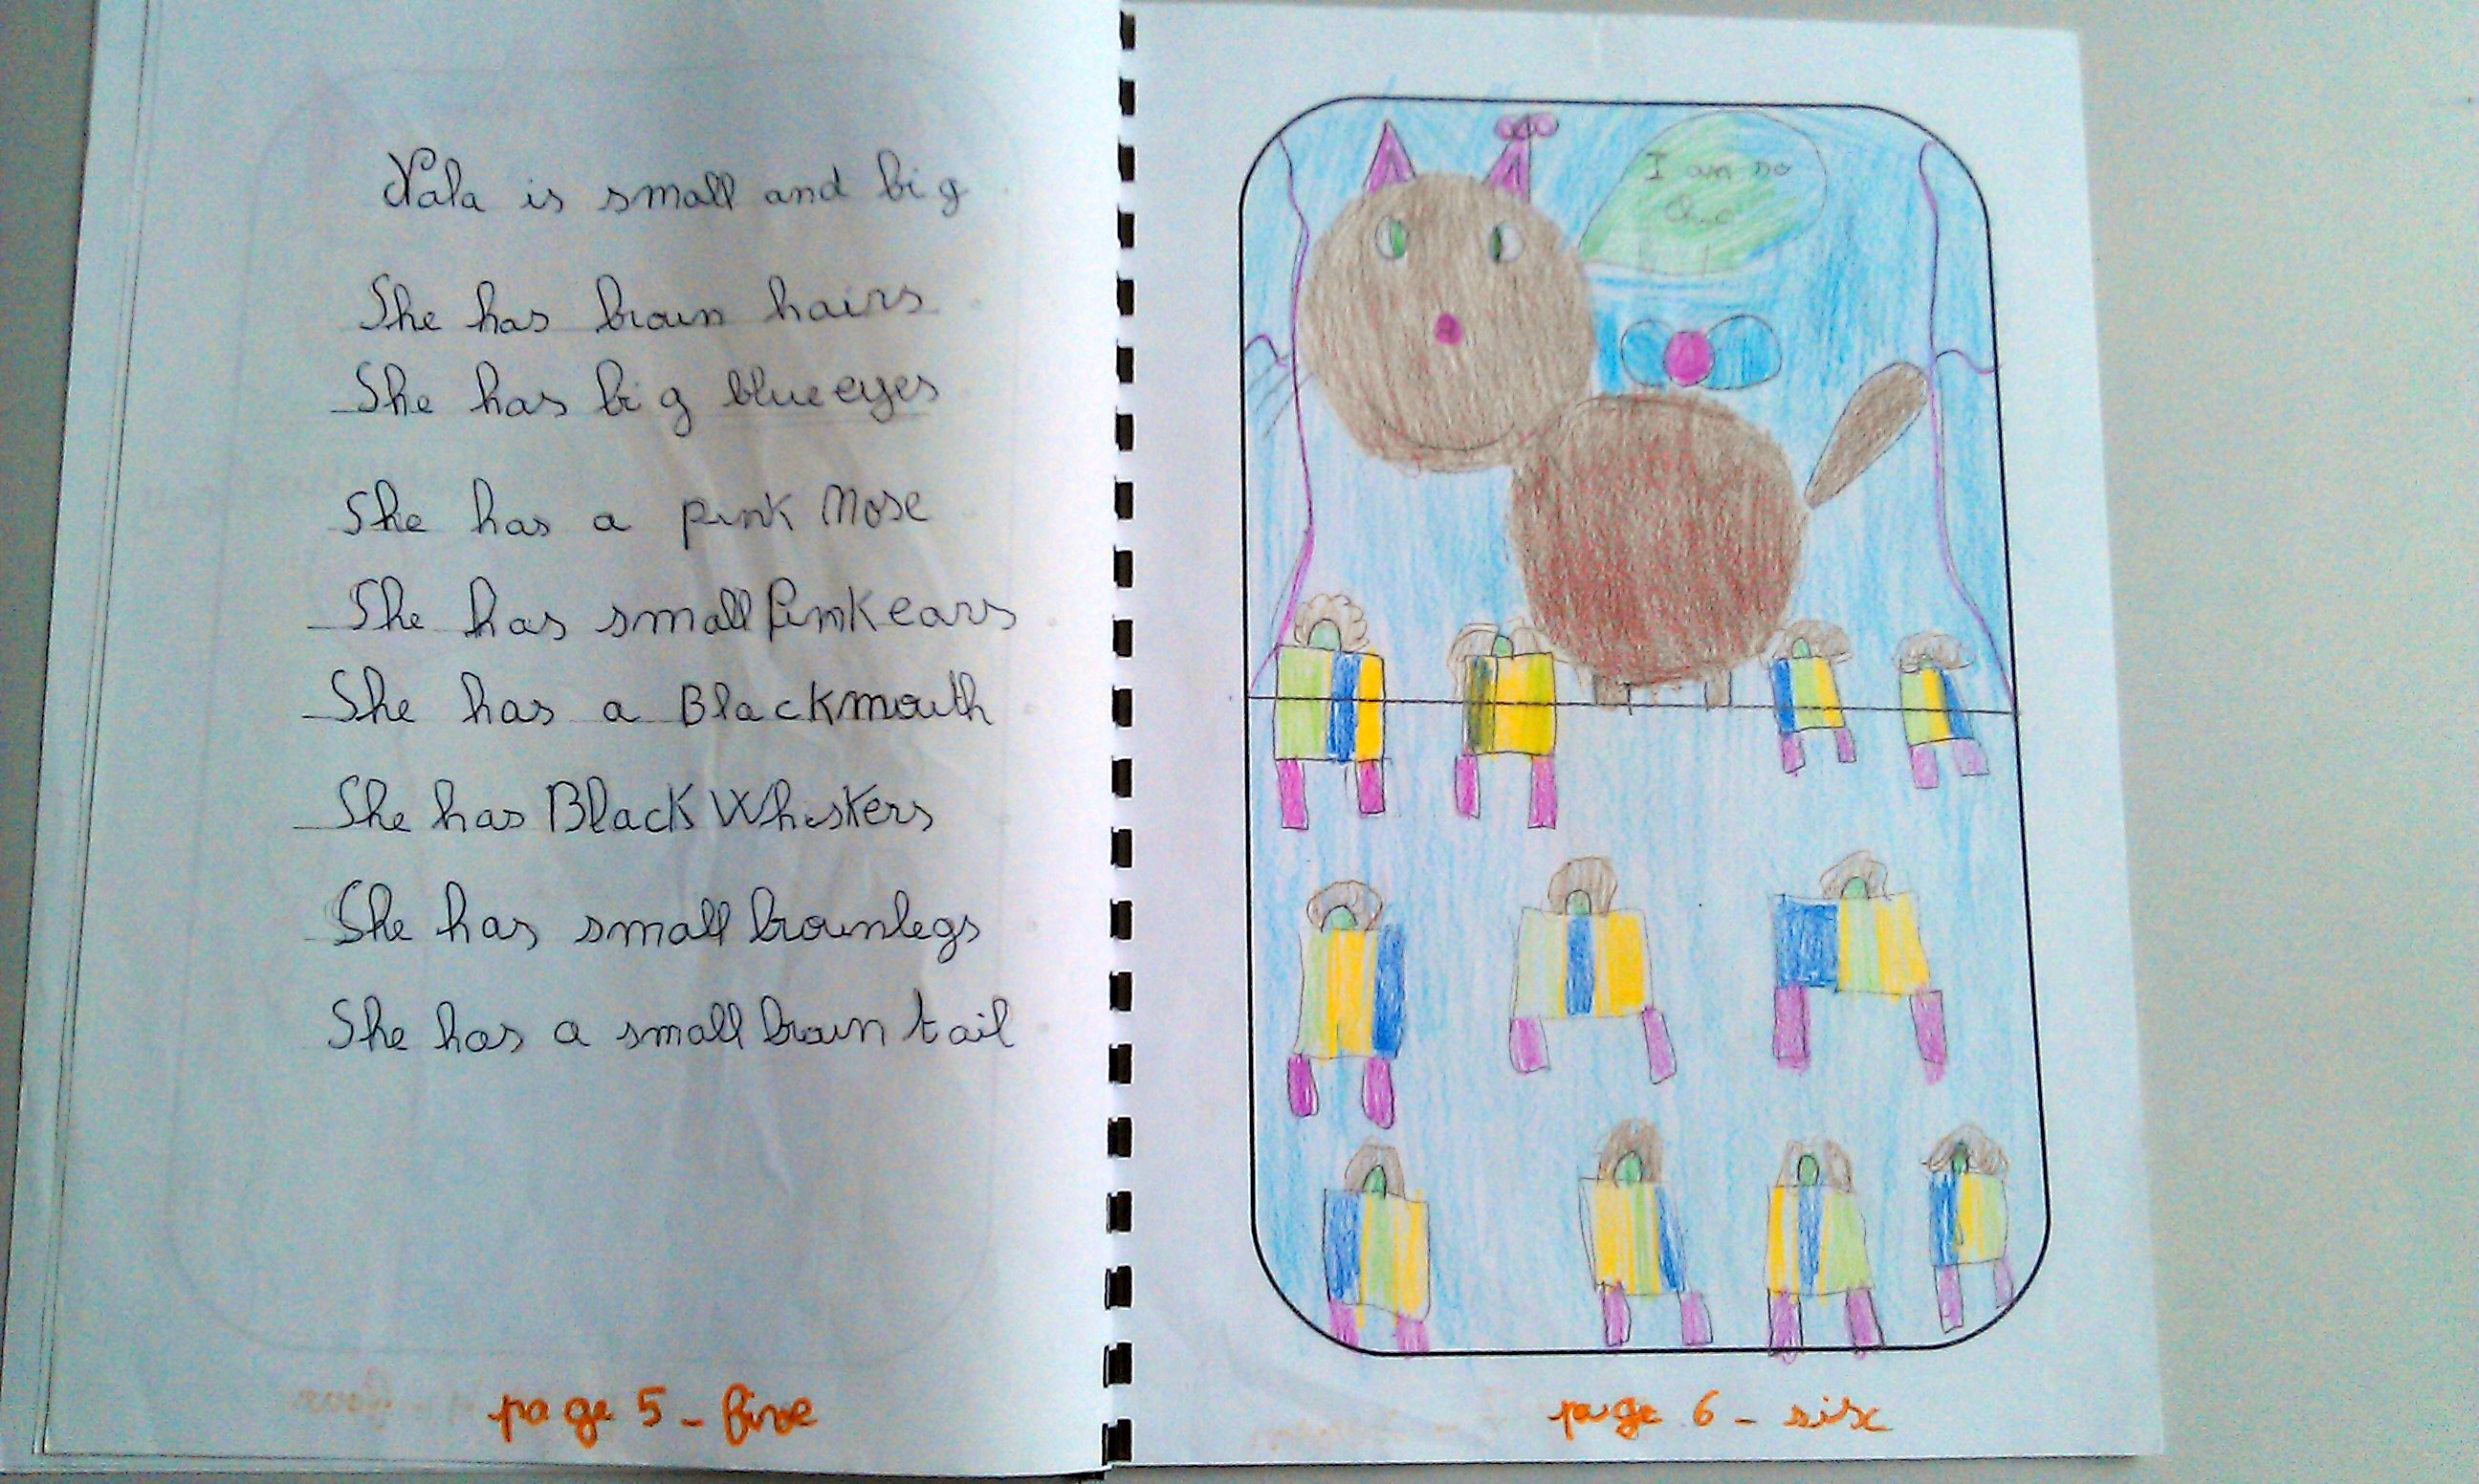 Nala is small and big
She has brown hairs
She has big blue eyes
She has a pink Nose
She has small Pink ears
She has a Black mouth
She has Black Whiskers
She has small brown legs
She has a small brown tail
page 5 - five
I am so
page 6 - six